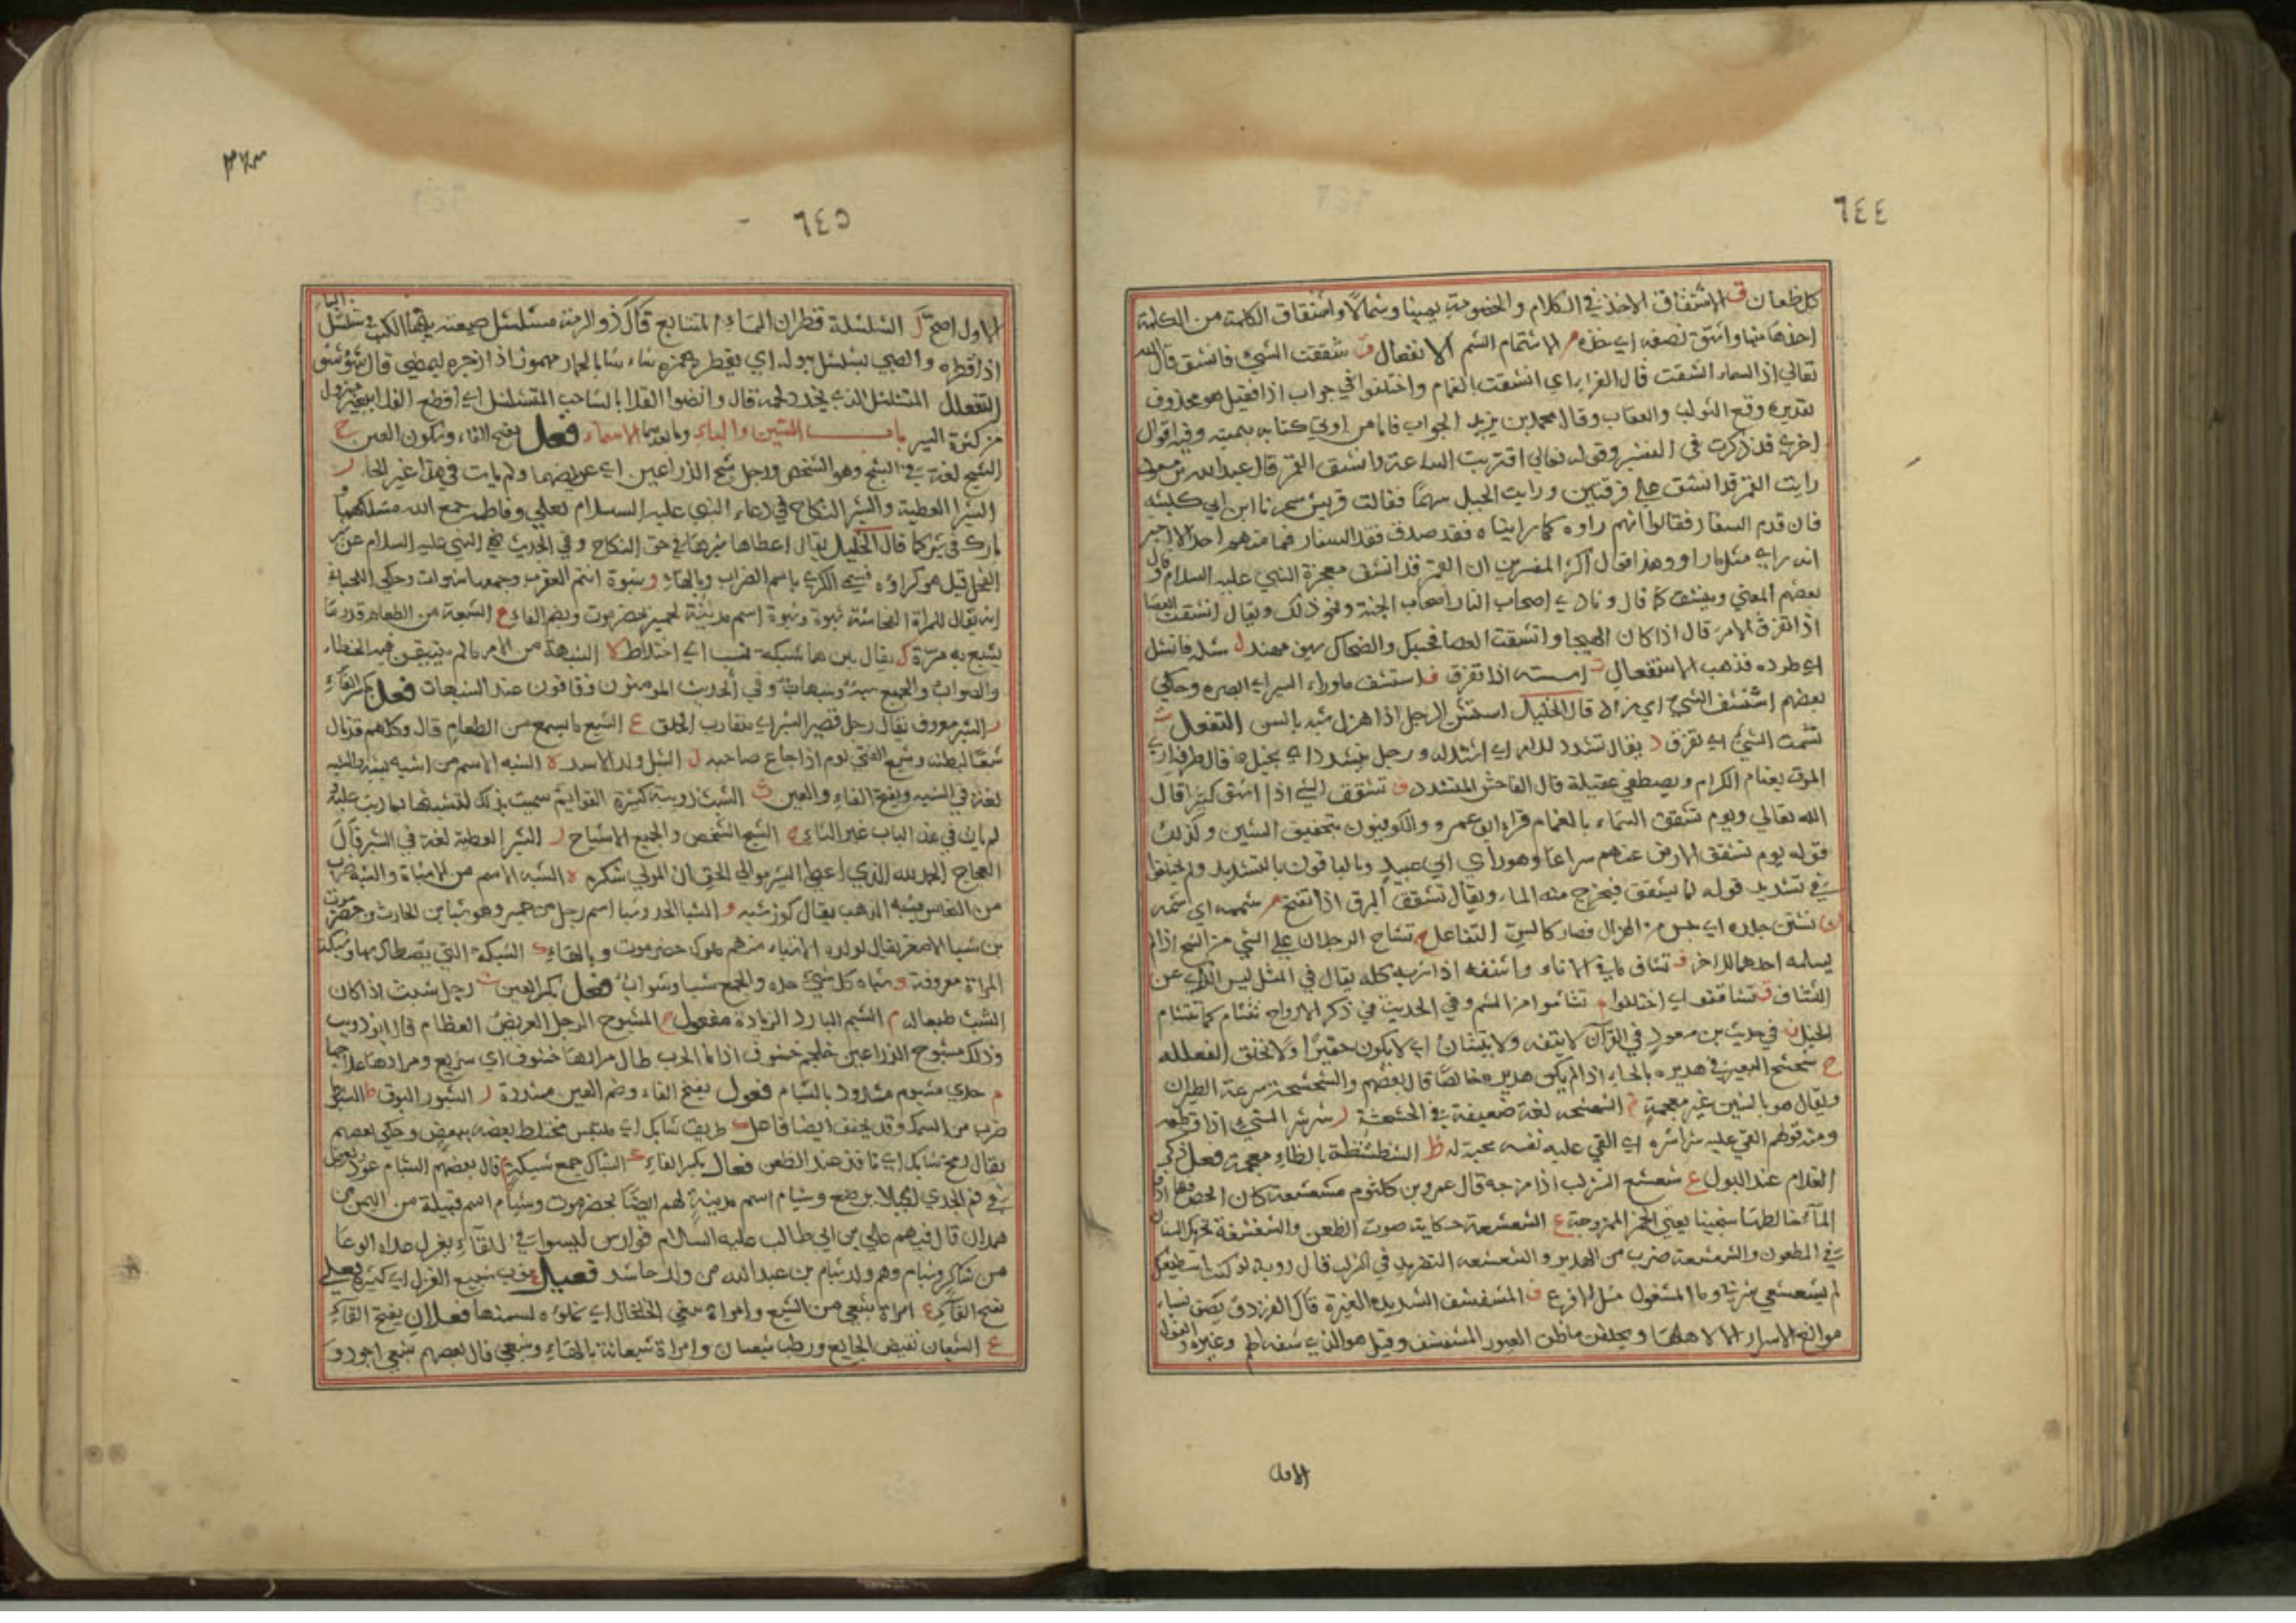 ٦٤٤
كل ظعان ق الاشتقاق الاخذ في الكلام والخصومة يمينا وشمالا واشتقاق الكلمة من الكلمة
اخذها منها واشتق نصفه اي خذه م الاشتمام الشم الانفعال ق شققت الشيء فانشق قال الله
تعالى اذا السماء انشقت قال الفراء اي انشقت بالغمام واختلفوا في جواب اذا فقيل هو محذوف
تقديره وقع الثواب والعقاب وقال محمد بن يزيد الجواب فاما من اوتي كتابه بيمينه وفيه اقوال
اخرى قد ذكرت في التفسير وقوله تعالى اقتربت الساعة وانشق القمر قال عبد الله بن مسعود
رايت القمر قد انشق على فرقتين ورايت الجبل بينهما فقالت قريش سحرنا ابن ابي كبشة
فان قدم السفار فقالوا انهم راوه كما رايناه فقد صدق فقدم السفار فما منهم احد الا اخبر
انه راى مثل ما راوا وهذا قول اكثر المفسرين ان القمر قد انشق معجزة النبي عليه السلام وقال
بعضهم المعنى وينشق كما قال ونادى اصحاب النار اصحاب الجنة ونحو ذلك ويقال انشقت العصا
اذا تفرق الامر قال اذا كان الهيجا وانشقت العصا فحسبك والضحاك سيف مهند ل شله فانشل
اي طرده فذهب الاستفعال ت استشت اذا تفرق ف استشف ما وراء الستر اي ابصره وحكى
بعضهم اشتشف الشيء اي قال الخليل استشن الرجل اذا هزل شبه بالشن التفعل ت
تشتت الشيء اي تفرق د يقال تشدد للامر اي اشتد له ورجل متشدد اي بخيل قال طرفة ارى
الموت يعتام الكرام ويصطفي عقيلة مال الفاحش المتشدد ق تشقق الشيء اذا انشق كثيرا قال
الله تعالى ويوم تشقق السماء بالغمام قراء ابو عمرو والكوفيون بتخفيف الشين وكذلك
قوله يوم تشقق الارض عنهم سراعا وهو راي ابي عبيد والباقون بالتشديد ولم يختلفوا
في تشديد قوله لما يشقق فيخرج منه الماء ويقال تشقق البرق اذا تفتح م تشممه اي اشتمه
ن تشنن جلده اي يبس من الهزال فصار كالشن التفاعل ح تشاح الرجلان على الشيء من الشح اذا لم
يسلمه احدهما للاخر ف تشاف ما في الاناء واشتفه اذا شربه كله يقال في المثل ليس الري عن
التشاف ق تشاققوا اي اختلفوا م تشاموا من الشم وفي الحديث في ذكر الارواح تشام كما تشام
الخيل ن في حديث بن مسعود في القرآن لا يتفه ولا يتشان اي لا يكون حقيرا ولا يخلق الفعللة
ح شحشح البعير في هديره بالحاء اذا لم يكن هديره خالصا قال بعضهم والشحشحة سرعة الطيران
ويقال هو بالسين غير معجمة لغة ضعيفة في ر شرشر الشيء اذا قطعه
ومنه قولهم القى عليه شراشره اي القى عليه نفسه محبة له ظ الشظشظة بالظاء معجمة فعل ذكر
الغلام عند البول ع شعشع الشراب اذا مزجه قال عمرو بن كلثوم مشعشعة كان الحص فيها اذا ما
الماء خالطها سخينا يعني الخمر الممزوجة غ الشغشغة حكاية صوت الطعن والشغشغة تحريك السنان
في المطعون والشغشغة ضرب من الهدير والشغشغة التصريد في الشراب قال روبة لو كنت اسطيعك
لم يشغشغ شربي وما المشغول مثل الافرغ ف المشفشف الشديد الغيرة قال الفرزدق يصف نساء
موانع للاسرار الا لاهلها ويخلفن ما ظن الغيور المشفشف وقيل هو الذي شفه الهم وغيره والقول
الاول
٦٤٥
الاول اصح ل الشلشلة قطران الماء المتتابع قال ذو الرمة مشلشل ضيعته بينها الكتب شلشل
اذا قطره والصبي يشلشل بوله اي يقطره همزه شاء شا بالحمار مهموز اذا زجره ليمضي قال شؤشؤ
التفعلل المتشلشل الذي تخدد لحمه قال وانضوا الفلا بالشاحب المتشلشل اي اقطع الفلا ببعير مهزول
من كثرة السير باب الشين والباء وما بعدهما الاسماء فعل بفتح الفاء وسكون العين ح
الشبح لغة في الشبح وهو الشخص ورجل شبح الذراعين اي عريضهما ولم يات في هذا غير الحاء ر
الشبر العطية والشبر النكاح في دعاء النبي عليه السلام لعلي وفاطمة جمع الله شملكما و
بارك في شبركما قال الخليل يقال اعطاها شبرها في حق النكاح وفي الحديث نهى النبي عليه السلام عن شبر
الفحل قيل هو كراؤه فسمي الكرى باسم الضراب وبالهاء و شبوة اسم العقرب وجمعها شبوات وحكى اللحياني
انه يقال للمراة الفاحشة شبوة وشبوة اسم مدينة لحمير بحضرموت وبضم الفاء ع الشبعة من الطعام قدر ما
يشبع به مرة ك يقال بينهما شبكة نسب اي اختلاط ه الشبهة من الامر ما لم يتيقن فيه الخطاء
والصواب والجمع شبه وشبهات وفي الحديث المومنون وقافون عند الشبهات فعل بكسر الفاء
ر الشبر معروف يقال رجل قصير الشبر اي متقارب الخلق ع الشبع ما يشبع من الطعام قال وكلهم قد نال
شبعا لبطنه وشبع الفتى لوم اذا جاع صاحبه ل الشبل ولد الاسد ه الشبه الاسم من اشبه يشبه والشبه
لغة في الشبه وبفتح الفاء والعين ث الشبث دويبة كثيرة القوائم سميت بذلك لتشبثها بما دبت عليه و
لم يات في هذا الباب غير الثاء ح الشبح الشخص والجمع الاشباح ر الشبر العطية لغة في الشبر قال
العجاج الحمد لله الذي اعطى الشبر موالي الحق ان المولى شكر ه الشبه الاسم من الاشباه والشبه ضرب
من النحاس يشبه الذهب يقال كوز شبه و الشبا الحد وشبا اسم رجل من حمير وهو شبا بن الحارث بن حضرموت
بن سبا الاصغر يقال لولده الاشباء منهم ملوك حضرموت وبالهاء ك الشبكة التي يصطاد بها وشبكة
المراة معروفة و شباه كل شيء حده والجمع شبا وشبوات فعل بكسر العين ث رجل شبث اذا كان
الشبث طبعا له م الشبم البارد الزيادة مفعول ح المشبوح الرجل العريض العظام قال ابو ذويب
وذلك مشبوح الذراعين خلجم خشوف اذا ما الحرب طال مرارها خشوف اي سريع ومرارها علاجها
م جدي مشبوم مشدود بالشبام فعول بفتح الفاء وضم العين مشددة ر الشبور البوق ط الشبوط
ضرب من السمك وقد يخفف ايضا فاعل ك طريق شابك اي ملتبس مختلط بعضه ببعض وحكى بعضهم
يقال رمح شابك اي نافذ عند الطعن فعال بكسر الفاء ك الشباك جمع شبكة م قال بعضهم الشبام عود يعرض
في فم الجدي لئلا يرضع وشبام اسم مدينة لهم ايضا بحضرموت وشبام اسم قبيلة من اليمن من
همدان قال فيهم علي بن ابي طالب عليه السلام فوارس ليسوا في اللقاء بعزل غداة الوغا
من شاكر وشبام وهم ولد شبام بن عبد الله من ولد حاشد فعيل ع ثوب شبيع الغزل اي كثيره فعلى
بفتح الفاء ع امراة شبعى من الشبع وامراة شبعى الخلخال اي تملؤه لسمنها فعلان بفتح الفاء
ع الشبعان نقيض الجايع ورطب شبعان وامراة شبعانة بالهاء وشبعى قال بعضهم شبعى اجود و